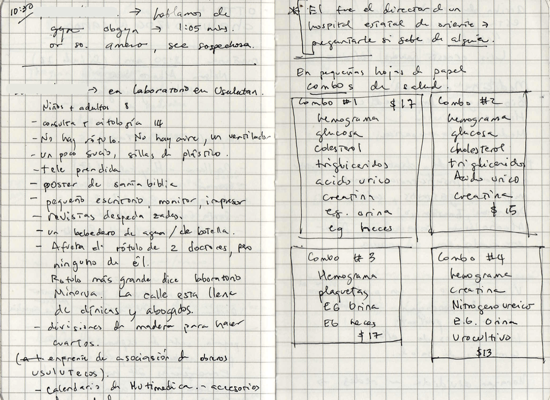 10:50
→ hablamos de
gyn obgyn → 1:05 mins.
or so. amero, see sospechosa.
→ en Laboratorio en Usulutan.
Niños + adultos 8
- consulta + citología 14
- No hay rótulo. No hay aire, un ventilador
- un poco sucio, sillas de plástico
- tele prendida
- poster de santa biblia
- pequeño escritorio, monitor, impresor
- revistas despedazadas.
- un bebedero de agua / de botella.
- Afuera el rótulo de 2 doctores, pero
ninguno de él.
Rotulo más grande dice laboratorio
Minerva. La calle esta llena
de clínicas y abogados.
- divisiones de madera para hacer
cuartos.
empresa de asociasión de obreros
usulutecos).
- calendario de Multimedica. - accesorios
* El fue el director de un
hospital en oriente →
preguntarle si sabe de alguien.
En pequeñas hojas de papel
combos de salud.
Combo #1 $17
hemograma
glucosa
colesterol
trigliceridos
acido urico
creatina
eg. orina
eg heces
Combo #2
hemograma
glucosa
cholesterol
trigliceridos
Acido urico
creatina
$15
Combo #3
Hemograma
plaquetas
EG Orina
EG heces
$17
Combo #4
hemograma
creatina
Nitrogeno ureico
e.g. Orina
Urocultivo
$13